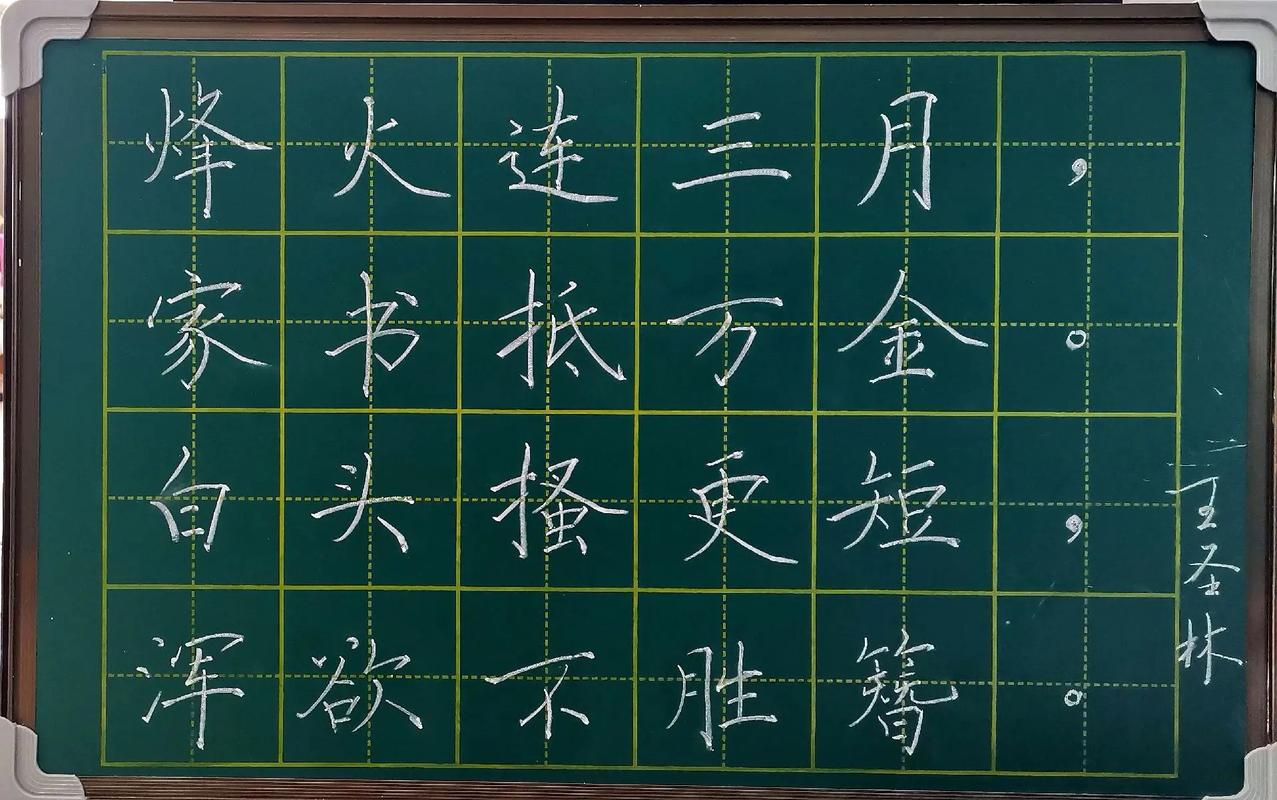 烽火连三月，
家书抵万金。
白头搔更短，
浑欲不胜簪。
王圣林